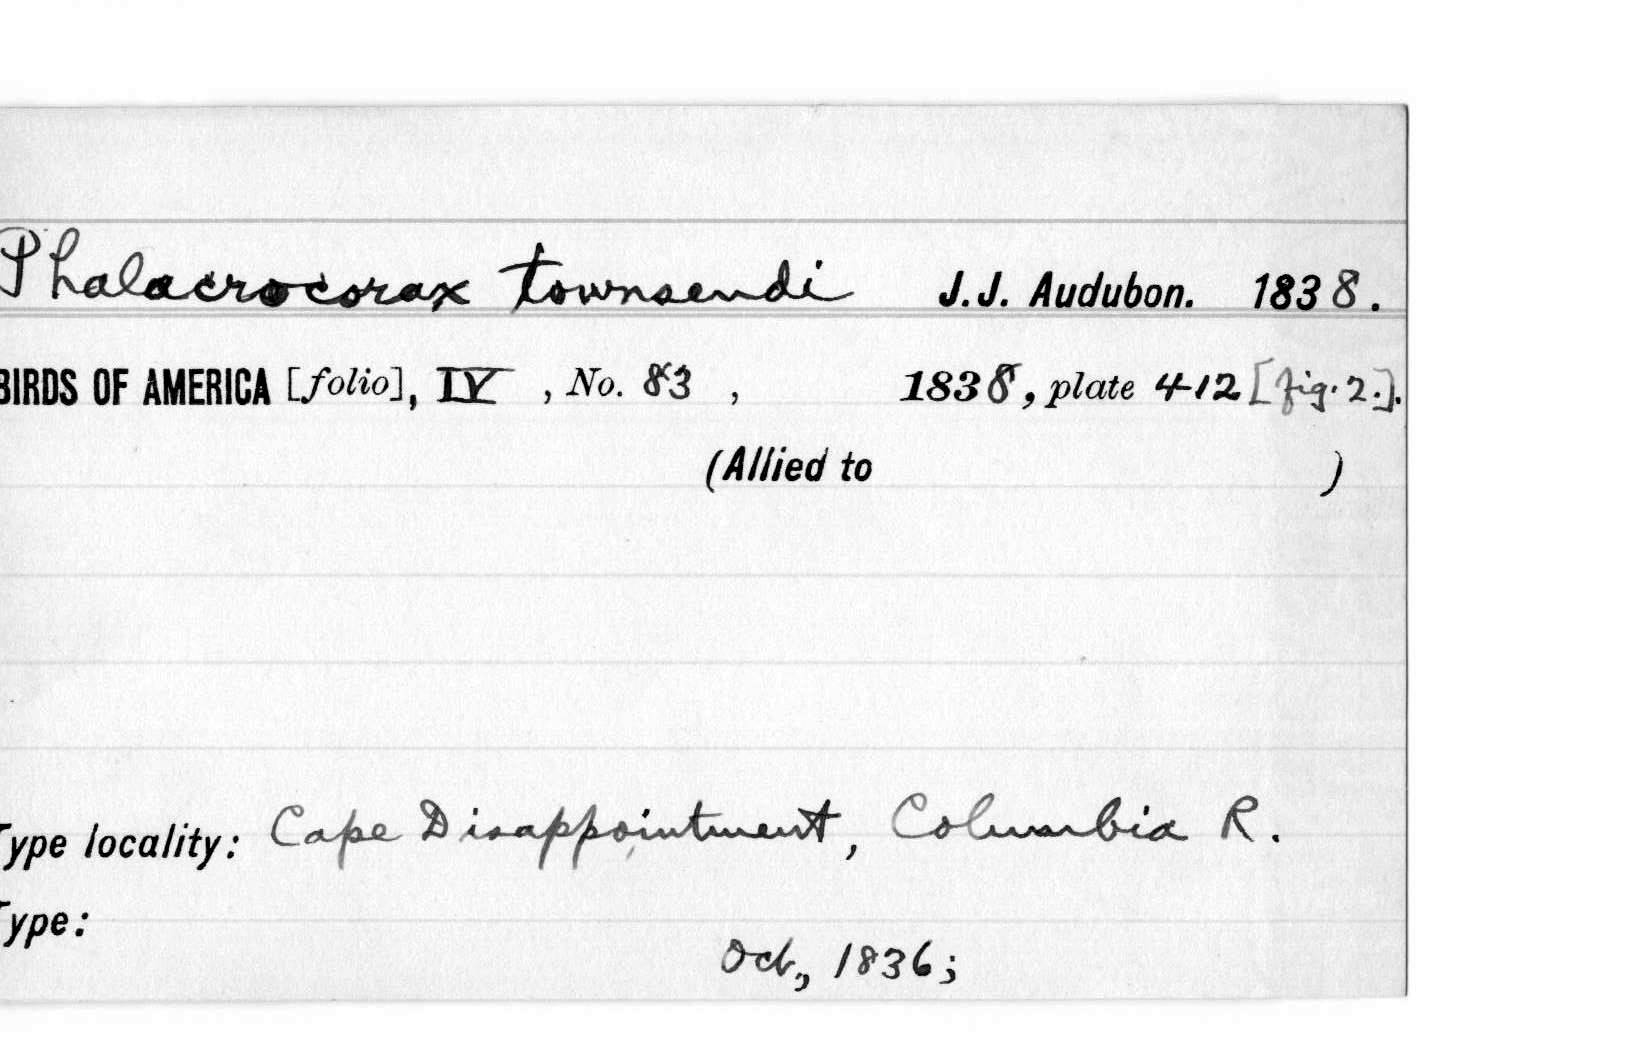 Phalacrocorax townsendi J.J. Audubon. 1838.
BIRDS OF AMERICA [folio], IV, No. 83, 1838, plate 412 [fig. 2.].
(Allied to )
Type locality: Cape Disappointment, Columbia R.
Type:
Oct, 1836;